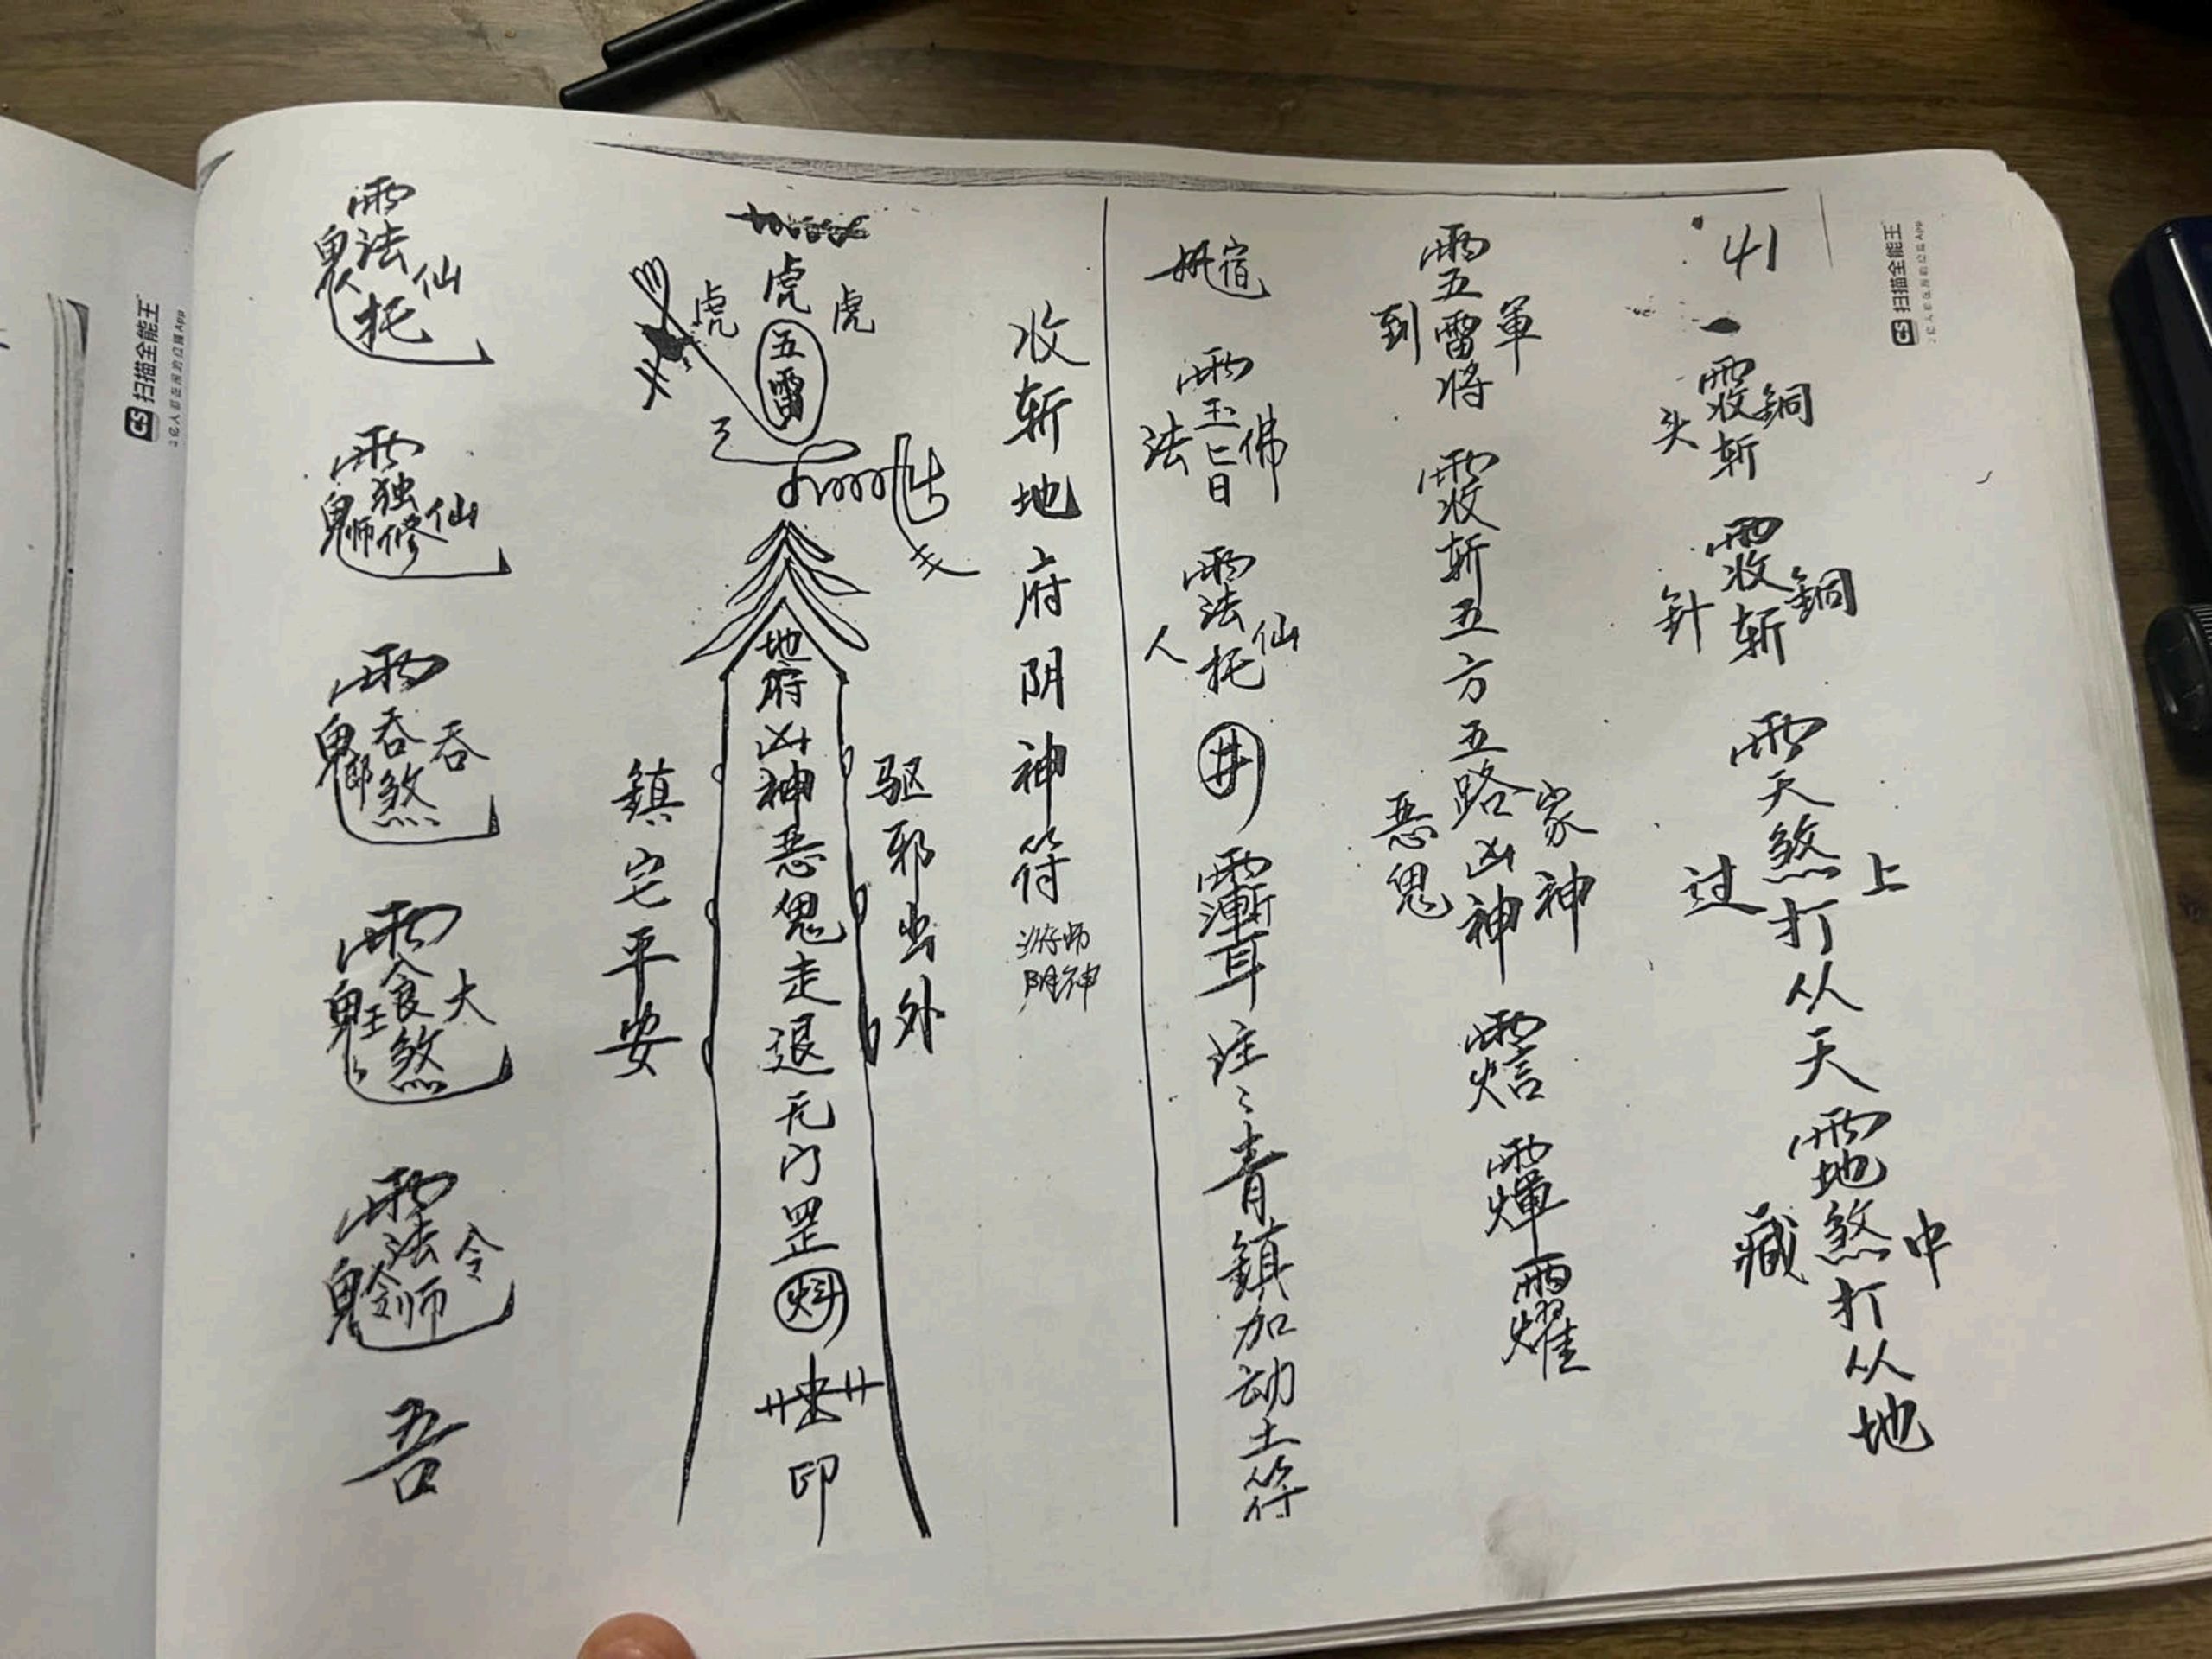 41
雨收斩
銅
头
雨收斩
銅
針
雨天煞打从天
上
过
雨地煞打从地
中
藏
雨五雷将
軍
到
雨收斩五方五路凶神
家神
恶鬼
雨炶
雨煇
雨耀
宿
雨玉旨
佛
法
雨法托
仙
人
井
雨漸耳
注:青鎮加动土符
收斩地府阴神符
游师阴神
虎
虎
虎
五雷
地府凶神恶鬼走退无门罡
印
驱邪出外
鎮宅平安
雨法托
仙
鬼
雨独修
仙
鬼师
雨吞煞
吞
鬼
雨食煞
大
鬼王
雨法师
令
鬼
吾
CS 扫描全能王
3亿人都在用的扫描App
CS 扫描全能王
3亿人都在用的扫描App